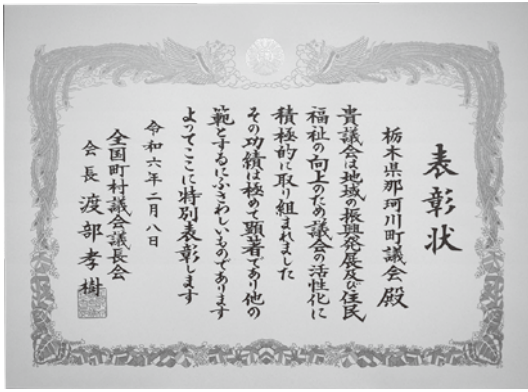 表彰状
栃木県那珂川町議会殿
貴議会は地域の振興発展及び住民
福祉の向上のため議会の活性化に
積極的に取り組まれました
その功績は極めて顕著であり他の
範とするにふさわしいものであります
よってここに特別表彰します
令和六年二月八日
全国町村議会議長会
会長 渡部孝樹